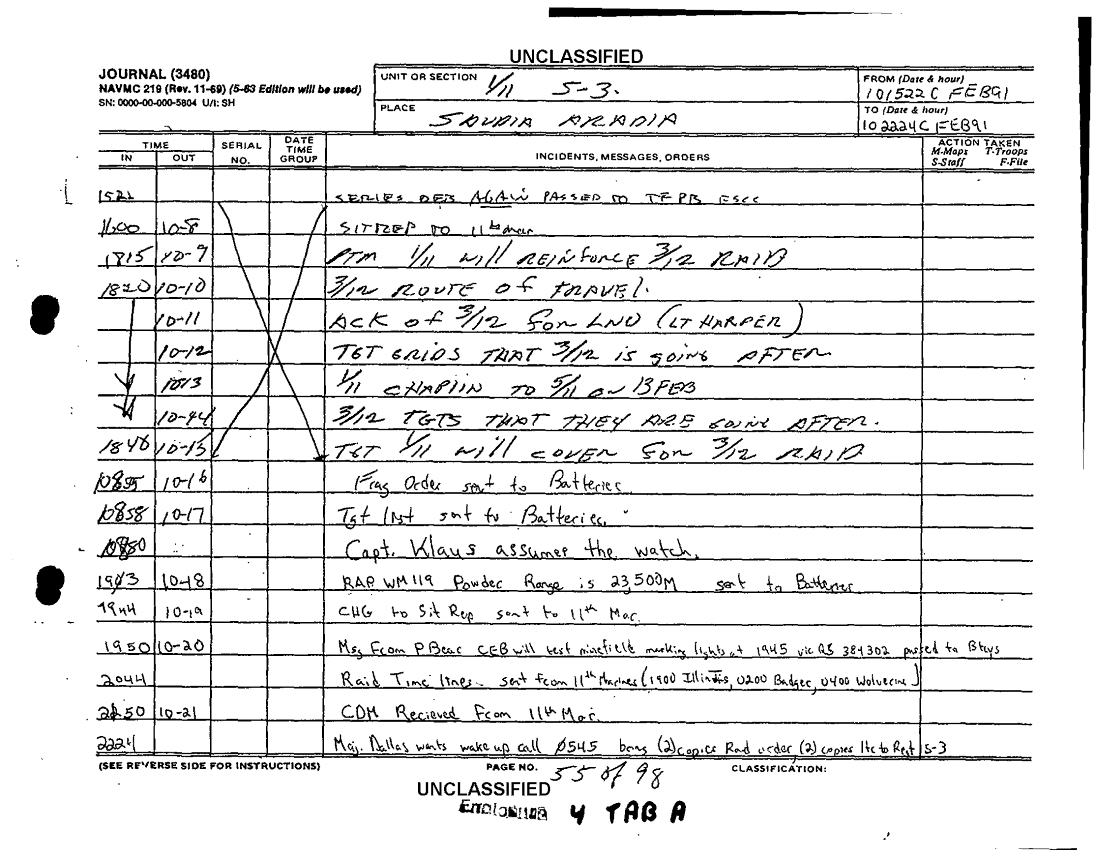 UNCLASSIFIED
JOURNAL (3480)
NAVMC 219 (Rev. 11-69) (5-63 Edition will be used)
SN: 0000-00-000-5804 U/I: SH
UNIT OR SECTION 1/11 S-3.
PLACE SAUDIA ARADIA
FROM (Date & hour)
101522C FEB91
TO (Date & hour)
102224C FEB91
TIME
IN OUT
SERIAL NO.
DATE TIME GROUP
INCIDENTS, MESSAGES, ORDERS
ACTION TAKEN
M-Maps T-Troops
S-Staff F-File
1521 SERIES DEB AGAIN PASSED TO TFPB FSCC
1600 10-8 SITREP TO 11th
1815 10-9 1/11 WILL REINFORCE 3/12 RAID
1820 10-10 3/12 ROUTE OF TRAVEL.
10-11 ACK OF 3/12 FOR LNO (LT HARPER)
10-12 TGT GRIDS THAT 3/12 IS GOING AFTER
1013 1/11 TO 5/11 ON 13 FEB
10-14 3/12 TGTS THAT THEY ARE GOING AFTER.
1846 10-15 TGT 1/11 WILL COVER FOR 3/12 RAID
10-16 Frag Order sent to Batteries
10-17 Tgt list sent to Batteries.
Capt. Klaus assumes the watch.
1903 10-18 RAP WM119 Powder Range is 23,500M sent to Batteries
1944 10-19 CHG to Sit Rep sent to 11th Mar.
1950 10-20 Msg From P.Bear CEB will test minefield marking lights at 1945 vic QS 384302 passed to Btrys
2044 Raid Time lines sent from 11th Marines (1900 Illinois, 0200 Badger, 0400 Wolverine)
2150 10-21 COM Recieved From 11th Mar.
2224 Maj. Dallas wants wake up call 0545 bring (2) copies Raid order (2) copies ltr to Regt S-3
(SEE REVERSE SIDE FOR INSTRUCTIONS)
PAGE NO. 55 of 98
CLASSIFICATION:
UNCLASSIFIED
4 TAB A